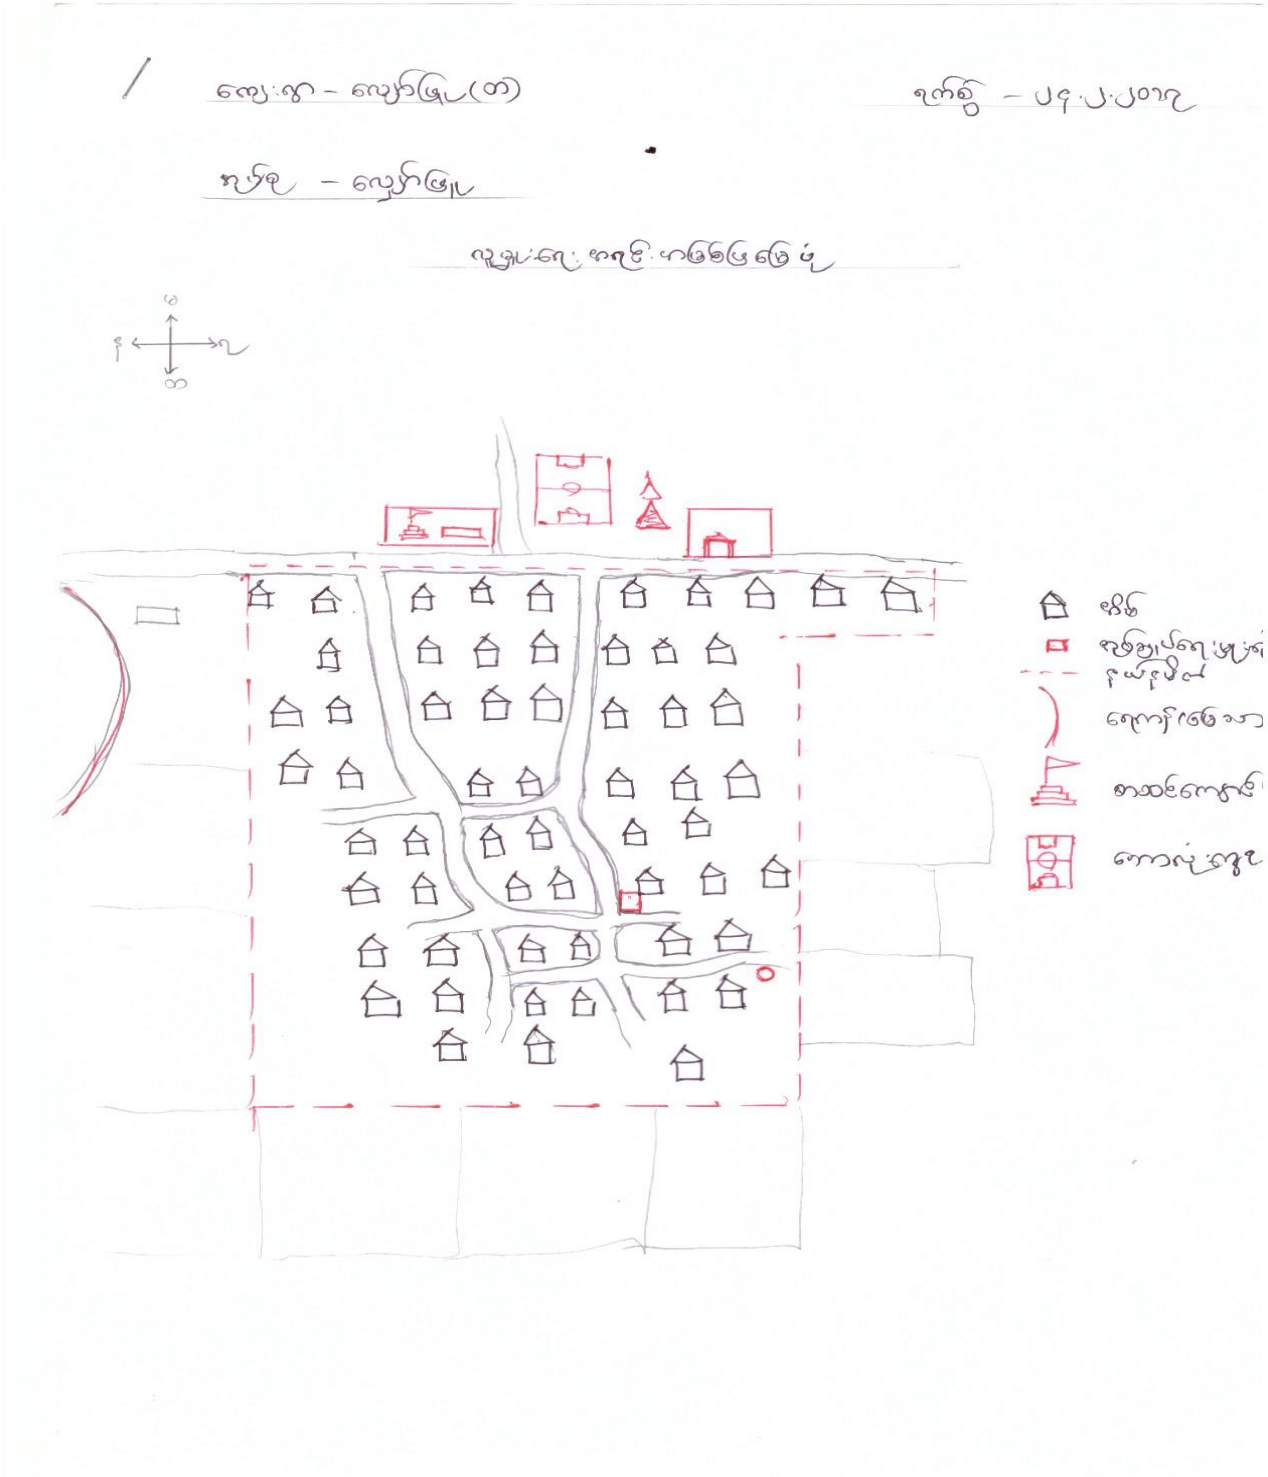 ကျေးရွာ - လျှော်ဖြူ (တ)
ရက်စွဲ - ၂၄.၂.၂၀၁၇
အုပ်စု - လျှော်ဖြူ
လူမှုရေး အရင်းအမြစ်ပြ မြေပုံ
မ
န
ရ
တ
အိမ်
နယ်နမိတ်
ရေကန်
စာသင်ကျောင်း
ဘောလုံးကွင်း